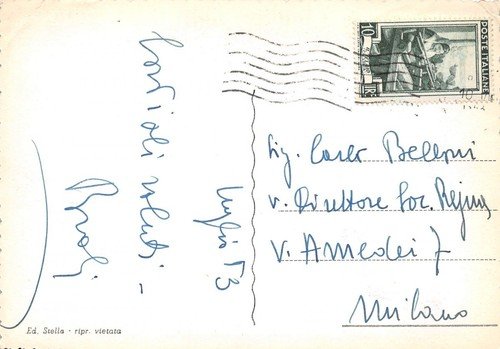 Cordiali saluti -
luglio 53
Ed. Stella - ripr. vietata
10
POSTE ITALIANE
Sig. Carlo Belloni
v. Direttore Soc.
V. Amedei 7
Milano